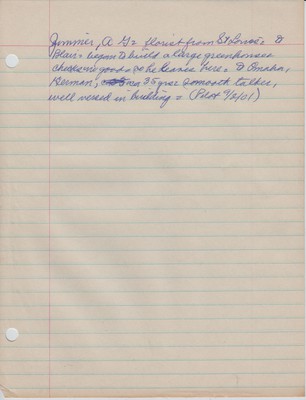 Jimmies, A G= florist from St Louis= to
Blair= began to build a large greenhouse=
checks no good= so he leaves here= to Omaha,
German, near 35 yrs= smooth talker,
well versed in building = (Pilot 9/2/01)